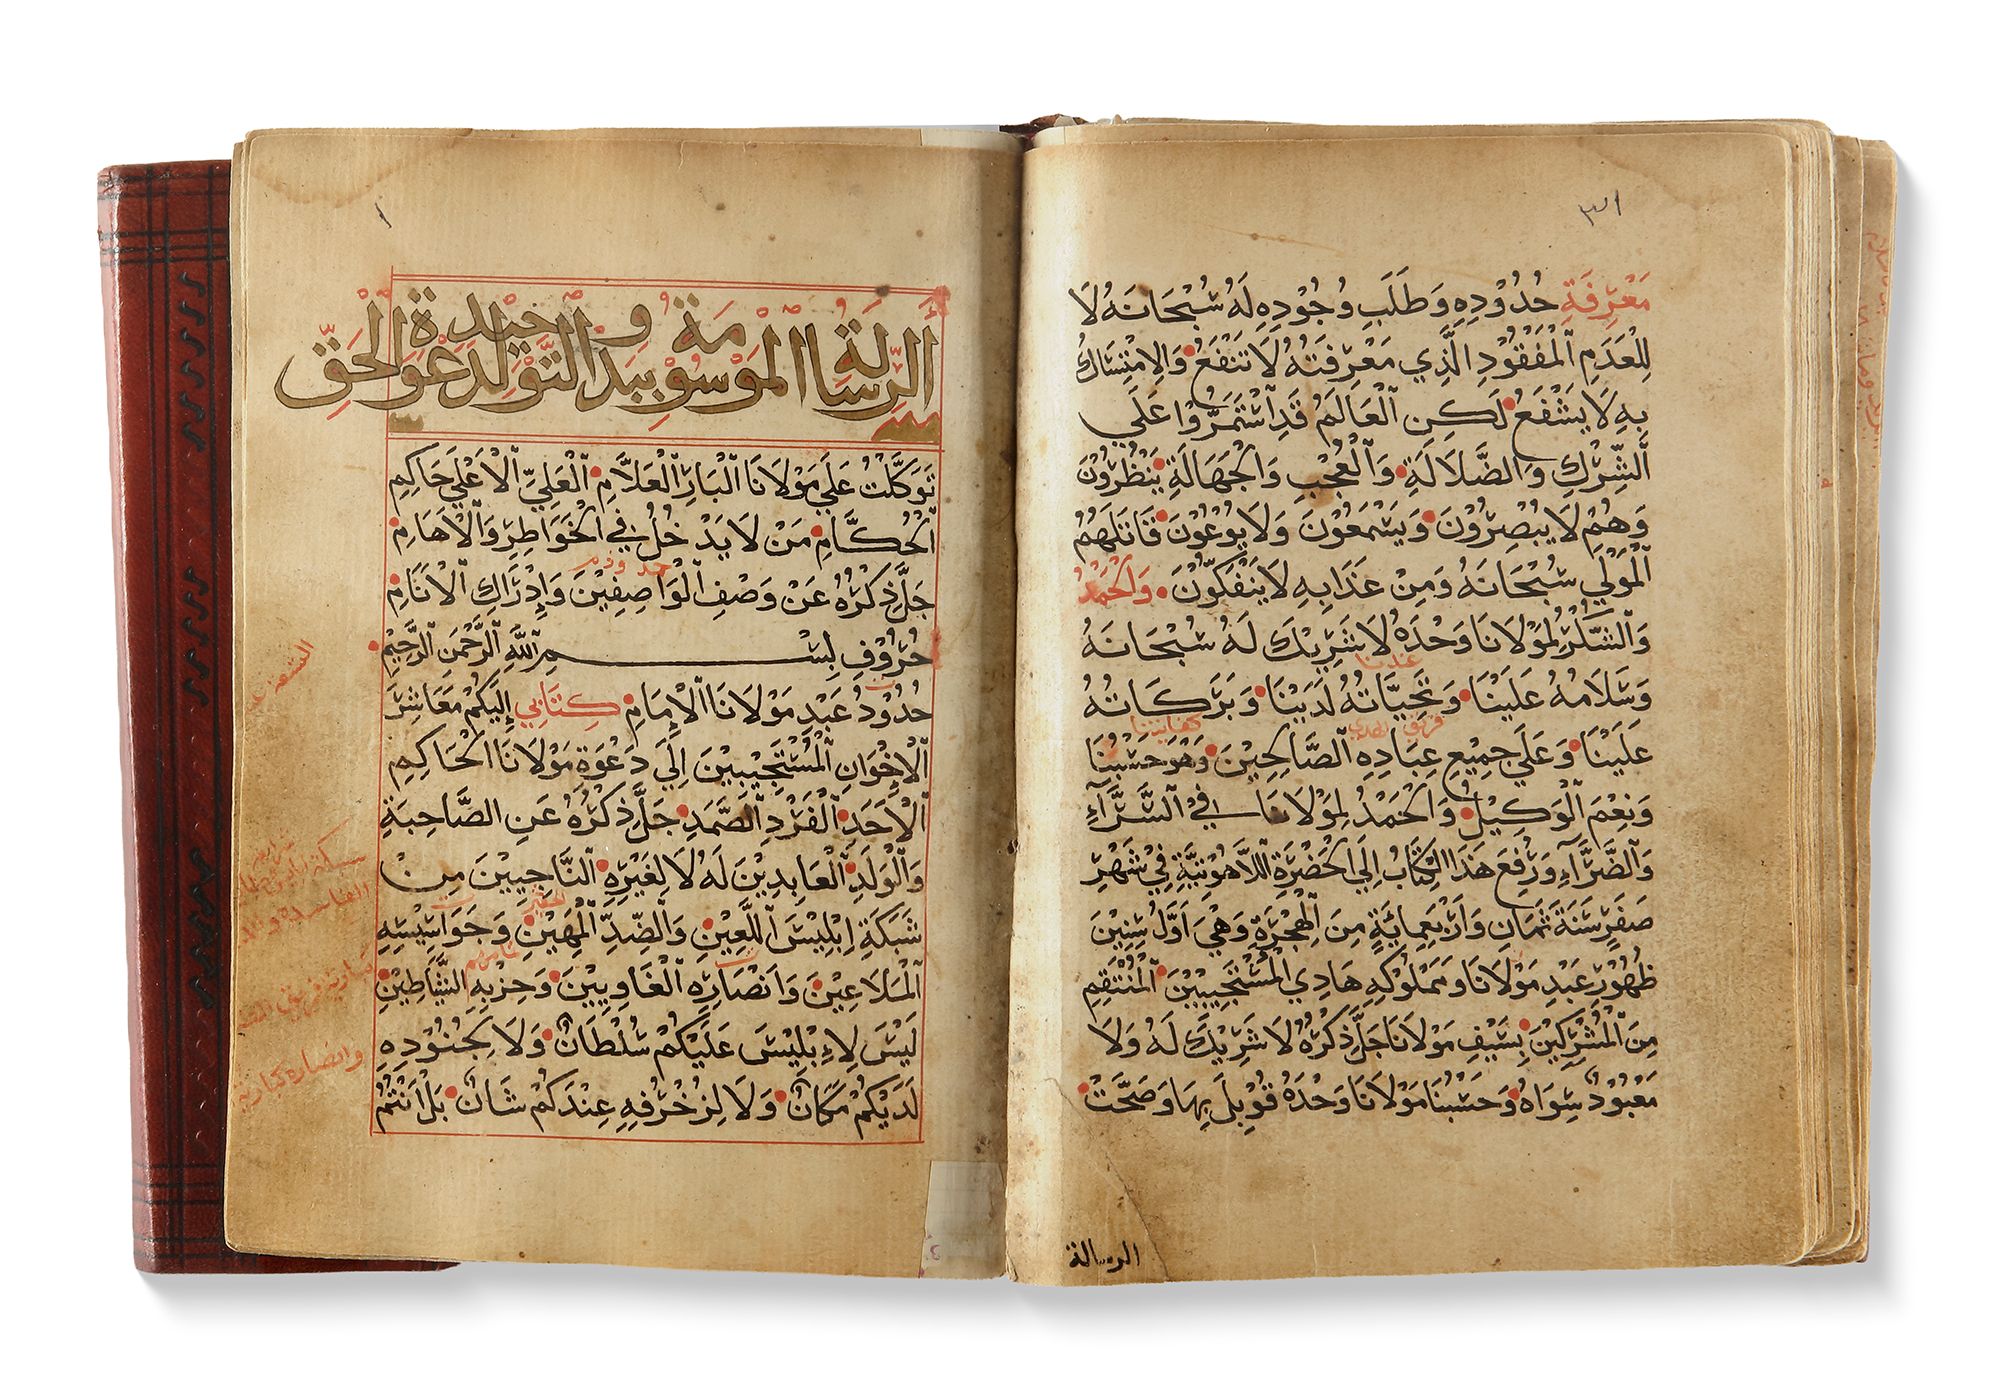 ٣١
مَعْرِفَةِ حُدُوْدِهِ وَطَلَبِ وُجُوْدِهِ لَهُ سُبْحَانَهُ لَا
لِلْعَدَمِ الْمَفْقُوْدِ الَّذِي مَعْرِفَتُهُ لَا تَنْفَعُ وَالاِمْتِسَاكُ
بِهِ لَا يَشْفَعُ لَكِنِ الْعَالَمُ قَدِ اسْتَمَرُّوْا عَلَي
الشِّرْكِ وَالضَّلَالَةِ وَالْعُجْبِ وَالْجَهَالَةِ يَنْظُرُوْنَ
وَهُمْ لَا يُبْصِرُوْنَ وَيَسْمَعُوْنَ وَلَا يُوْعُوْنَ قَاتَلَهُمُ
الْمَوْلَي سُبْحَانَهُ وَمِنْ عَذَابِهِ لَا يَنْفَكُّوْنَ وَالْحَمْدُ
وَالشُّكْرُ لِمَوْلَانَا وَحْدَهُ لَا شَرِيْكَ لَهُ سُبْحَانَهُ
عندنا
وَسَلَامُهُ عَلَيْنَا وَتَحِيَّاتُهُ لَدَيْنَا وَبَرَكَاتُهُ
عَلَيْنَا وَعَلَي جَمِيْعِ عِبَادِهِ الصَّالِحِيْنَ وَهُوَ حَسْبُنَا
وَنِعْمَ الْوَكِيْلُ وَالْحَمْدُ لِمَوْلَانَا فِي السَّرَّآءِ
وَالضَّرَّآءِ وَرُفِعَ هَذَا الْكِتَابُ اِلَي الْحَضْرَةِ اللَّاهُوْتِيَّةِ فِيْ شَهْرِ
صَفَرٍ سَنَةَ ثَمَانٍ وَاَرْبَعِمِائَةٍ مِنَ الْهِجْرَةِ وَهِيَ اَوَّلُ سِنِيْنَ
ظُهُوْرِ عَبْدِ مَوْلَانَا وَمَمْلُوْكِهِ هَادِي الْمُسْتَجِيْبِيْنَ الْمُنْتَقِمِ
مِنَ الْمُشْرِكِيْنَ بِسَيْفِ مَوْلَانَا جَلَّ ذِكْرُهُ لَا شَرِيْكَ لَهُ وَلَا
مَعْبُوْدٌ سِوَاهُ وَحَسْبُنَا مَوْلَانَا وَحْدَهُ قُوْبِلَ بِهَا وَصَحَّتْ
الرسالة
١
الرِّسَالَةُ الْمَوْسُوْمَةُ بِبَدْوِ التَّوْحِيْدِ لِدَعْوَةِ الْحَقِّ
تَوَكَّلْتُ عَلَي مَوْلَانَا الْبَارِ الْعَلَّامِ الْعَلِيِّ الْاَعْلَي حَاكِمِ
الْحُكَّامِ مَنْ لَا يَدْخُلُ فِي الْخَوَاطِرِ وَالْاَوْهَامِ
جَلَّ ذِكْرُهُ عَنْ وَصْفِ الْوَاصِفِيْنَ وَاِدْرَاكِ الْاَنَامِ
حُرُوْفِ بِسْمِ اللهِ الرَّحْمَنِ الرَّحِيْمِ
حُدُوْدُ عَبْدِ مَوْلَانَا الْاِمَامِ كِتَابِي اِلَيْكُمْ مَعَاشِرَ
الْاِخْوَانِ الْمُسْتَجِيْبِيْنَ اِلَي دَعْوَةِ مَوْلَانَا الْحَاكِمِ
الْاَحَدِ الْفَرْدِ الصَّمَدِ جَلَّ ذِكْرُهُ عَنِ الصَّاحِبَةِ
وَالْوَلَدِ الْعَابِدِيْنَ لَهُ لَا لِغَيْرِهِ النَّاجِيِيْنَ مِنْ
شَبَكَةِ اِبْلِيْسَ اللَّعِيْنِ وَالضِّدِّ الْمَهِيْنِ وَجَوَاسِيْسِهِ
الْمَلَاعِيْنَ وَاَنْصَارِهِ الْغَاوِيِيْنَ وَحِزْبِهِ الشَّيَاطِيْنَ
لَيْسَ لِاِبْلِيْسَ عَلَيْكُمْ سُلْطَانٌ وَلَا لِجُنُوْدِهِ
لَدَيْكُمْ مَكَانٌ وَلَا لِزُخْرُفِهِ عِنْدَكُمْ شَانٌ بَلْ اَنْتُمْ
وانصاره كبارية